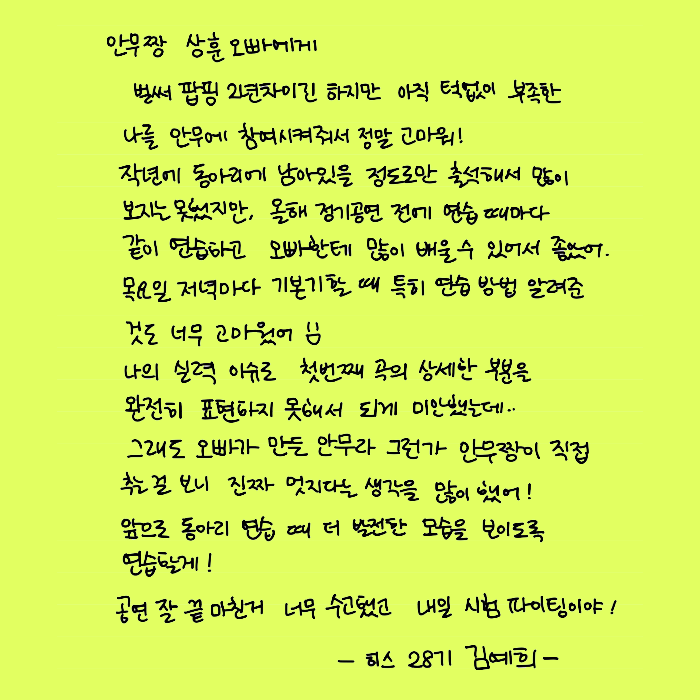 안무짱 상훈오빠에게
벌써 팝핑 2년차이긴 하지만 아직 턱없이 부족한
나를 안무에 참여시켜줘서 정말 고마워!
작년에 동아리에 남아있을 정도로만 출석해서 많이
보지는 못했지만, 올해 정기공연 전에 연습 때마다
같이 연습하고 오빠한테 많이 배울수 있어서 좋았어.
목요일 저녁마다 기본기할 때 특히 연습 방법 알려준
것도 너무 고마웠어
나의 실력 이슈로 첫번째 곡의 상세한 부분을
완전히 표현하지 못해서 되게 미안했는데..
그래도 오빠가 만든 안무라 그런가 안무짱이 직접
추는걸 보니 진짜 멋지다는 생각을 많이 했어!
앞으로 동아리 연습 때 더 발전한 모습을 보이도록
연습할게!
공연 잘 끝마친거 너무 수고했고 내일 시험 파이팅이야!
- 히스 28기 김예희 -